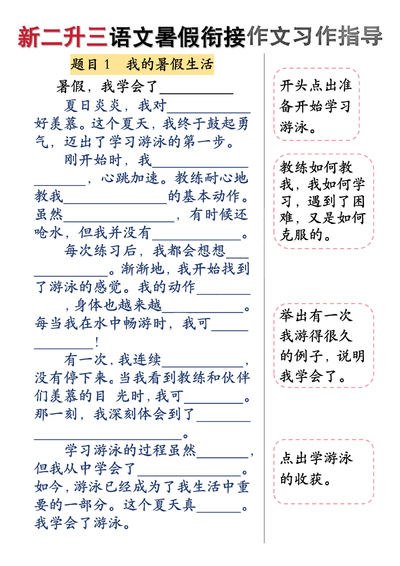 新二升三语文暑假衔接作文习作指导
题目1 我的暑假生活
暑假，我学会了____________
夏日炎炎，我对____________
好羡慕。这个夏天，我终于鼓起勇
气，迈出了学习游泳的第一步。
刚开始时，我____________
______，心跳加速。教练耐心地
教我____________的基本动作。
虽然____________，有时候还
呛水，但我并没有____________。
每次练习后，我都会想想____
____________。渐渐地，我开始找到
了游泳的感觉。我的动作________
____，身体也越来越____________。
每当我在水中畅游时，我可______
________！
有一次，我连续____________，
没有停下来。当我看到教练和伙伴
们羡慕的目 光时，我可________。
那一刻，我深刻体会到了________
____________________。
学习游泳的过程虽然________，
但我从中学会了____________。
如今，游泳已经成为了我生活中重
要的一部分。这个夏天真______。
我学会了游泳。
开头点出准
备开始学习
游泳。
教练如何教
我，我如何学
习，遇到了困
难，又是如何
克服的。
举出有一次
我游得很久
的例子，说明
我学会了。
点出学游泳
的收获。